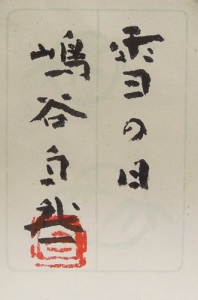 雪の日
嶋谷自然